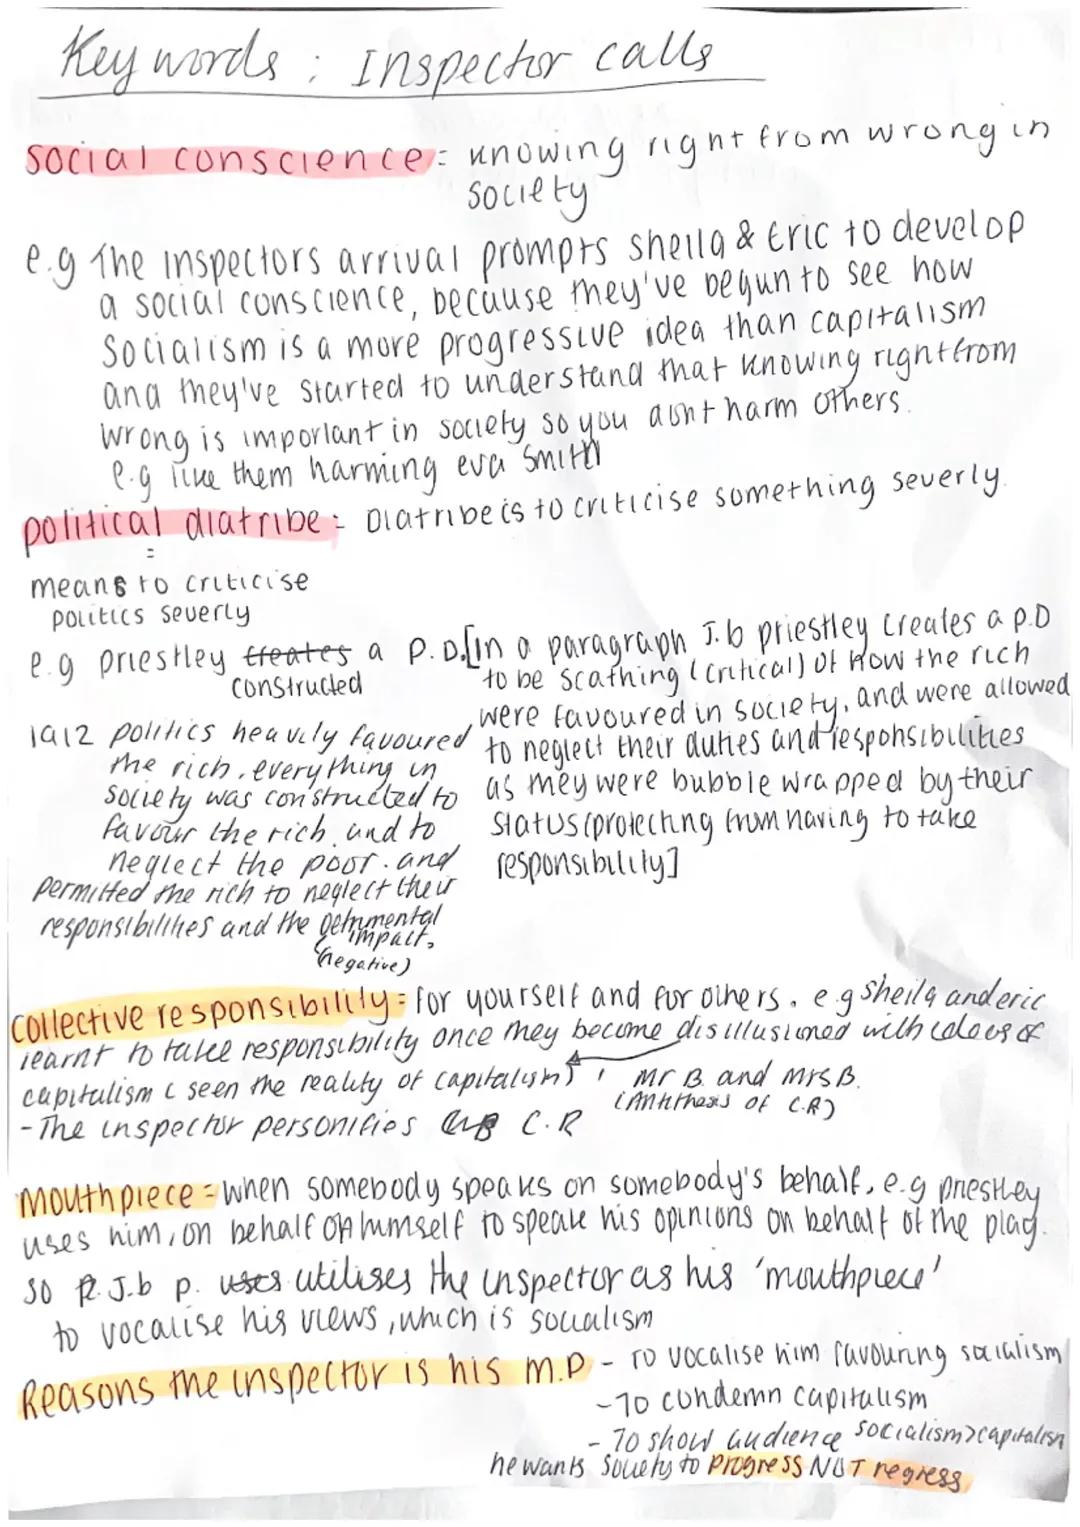 Key words : Inspector calls
social conscience = knowing right from wrong in
society
e.g The inspectors arrival prompts sheila & Eric to develop
a social conscience, because they've begun to see how
Socialism is a more progressive idea than capitalism
and they've started to understand that knowing right from
wrong is important in society so you dont harm others.
e.g like them harming eva Smith
political diatribe = Diatribe is to criticise something severly.
=
means to criticise
politics severly
e.g priestley creates a P.D.
constructed
1912 politics heavily favoured
the rich, everything in
society was constructed to
favour the rich, and to
neglect the poor. and
permitted the rich to neglect their
responsibilities and the detrimental
impact.
(negative)
[In a paragraph J.b priestley creates a p.D
to be scathing (critical) of how the rich
were favoured in society, and were allowed
to neglect their duties and responsibilities
as they were bubble wrapped by their
status (protecting from having to take
responsibility]
collective responsibility = for yourself and for others. e.g sheila and eric
learnt to take responsibility once they become disillusioned with ideas of
capitalism (seen the reality of capitalism), Mr B. and Mrs B.
(Antithesis of C.R)
- The inspector personifies C.R
Mouthpiece = when somebody speaks on somebody's behalf, e.g priestley
uses him, on behalf of himself to speak his opinions on behalf of the play.
so J.b p. uses utilises the inspector as his 'mouthpiece'
to vocalise his views, which is socialism
Reasons the inspector is his M.P - To vocalise him favouring socialism
- To condemn capitalism
- To show audience socialism>capitalism
he wants society to progress NOT regress.